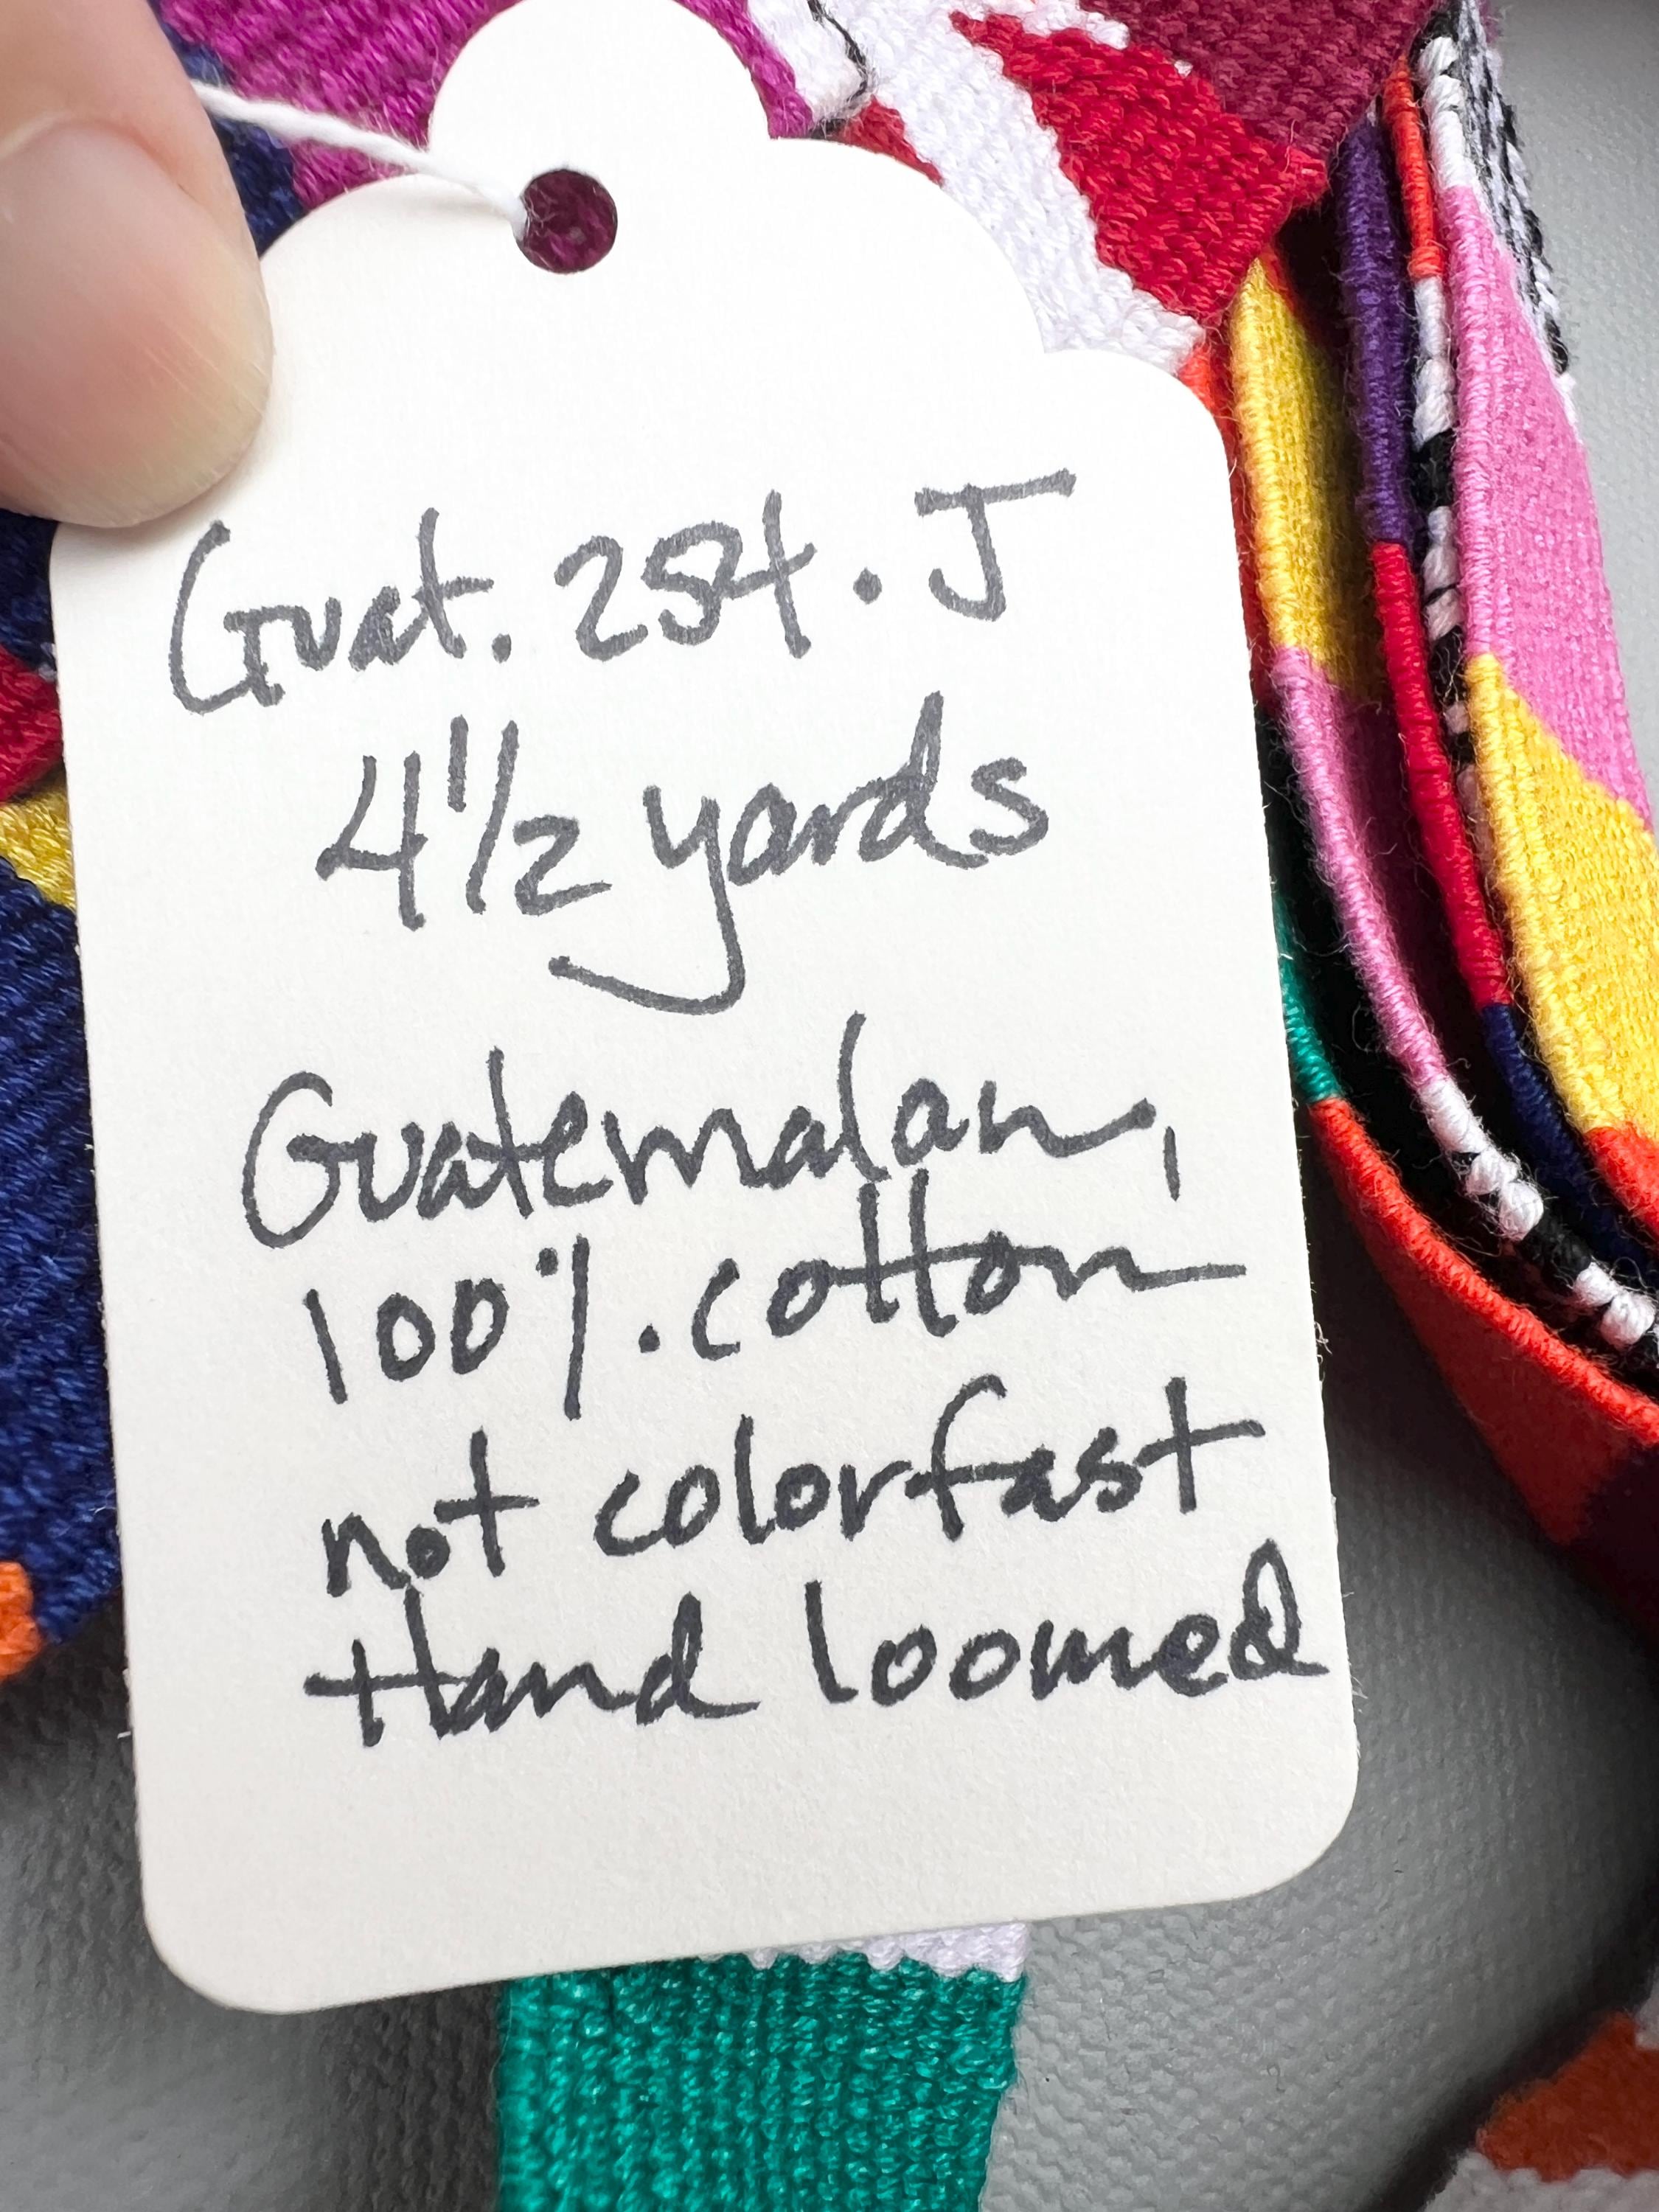 Guat. 254.J
4 1/2 yards
Guatemalan,
100%. cotton
not colorfast
Hand loomed